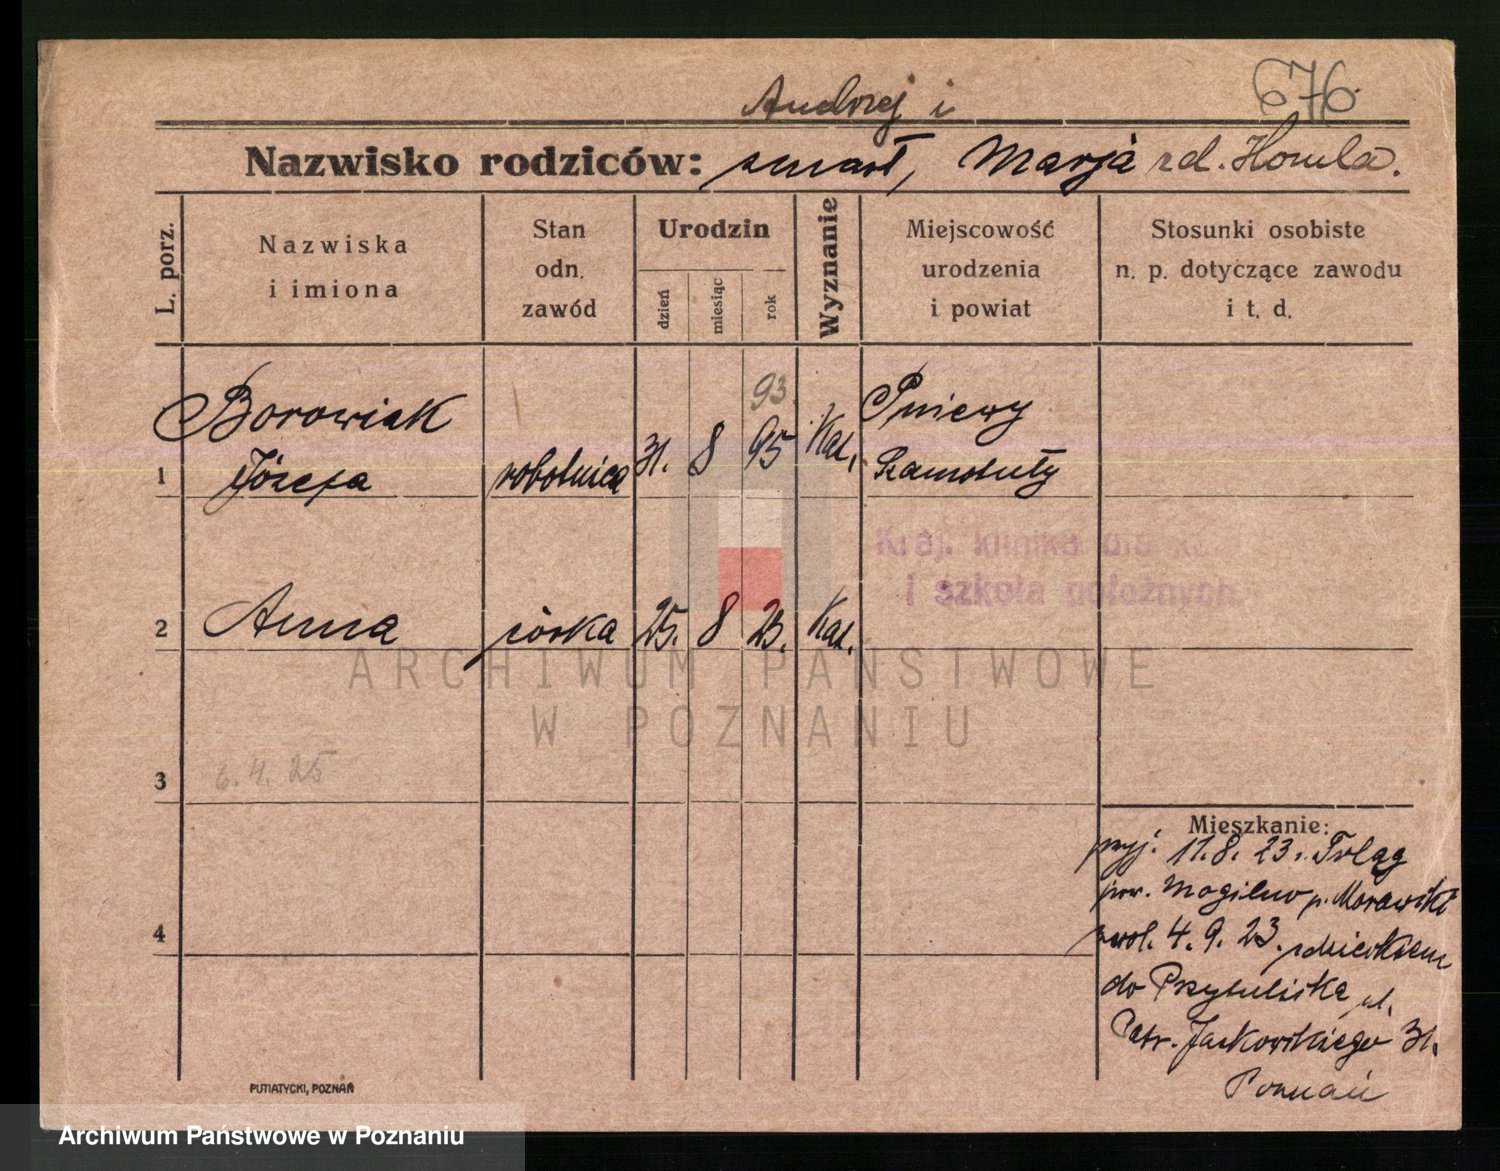 676
Andrzej i
Nazwisko rodziców: zmarł, Marja zd. Homla.
L. porz.
Nazwiska
i imiona
Stan
odn.
zawód
Urodzin
dzień
miesiąc
rok
Wyznanie
Miejscowość
urodzenia
i powiat
Stosunki osobiste
n. p. dotyczące zawodu
i t. d.
93.
Borowiak
Pniewy
1 Józefa robotnica 31. 8 95 Kat. Szamotuły
Kraj. klinika dla
i szkoła położnych
2 Anna córka 25. 8 23. Kat.
ARCHIWUM PAŃSTWOWE
W POZNANIU
3 6. 4. 25
Mieszkanie:
przyj. 11. 8. 23. Trląg
pow. Mogilno p. Morawski
4 zwol. 4. 9. 23. z dzieckiem
do Przytuliska ul.
Patr. Jackowskiego 31.
Poznań
PUTIATYCKI, POZNAŃ
Archiwum Państwowe w Poznaniu